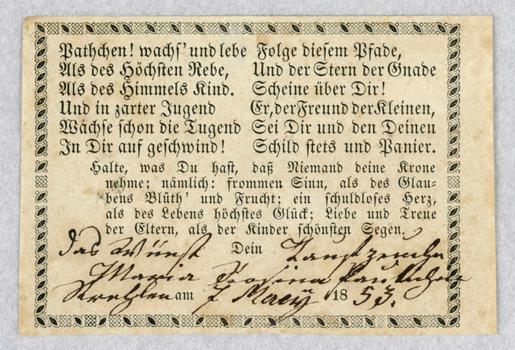 Pathchen! wachs' und lebe
Als des Höchsten Rebe,
Als des Himmels Kind.
Und in zarter Jugend
Wachse schon die Tugend
In Dir auf geschwind!
Folge diesem Pfade,
Und der Stern der Gnade
Scheine über Dir!
Er, der Freund der Kleinen,
Sei Dir und den Deinen
Schild stets und Panier.
Halte, was Du hast, daß Niemand deine Krone
nehme; nämlich: frommen Sinn, als des Glau-
bens Blüth' und Frucht; ein schuldloses Herz,
als des Lebens höchstes Glück; Liebe und Treue
der Eltern, als der Kinder schönsten Segen.
das Dein
Maria Rosina
Strehlen am 7 1853.